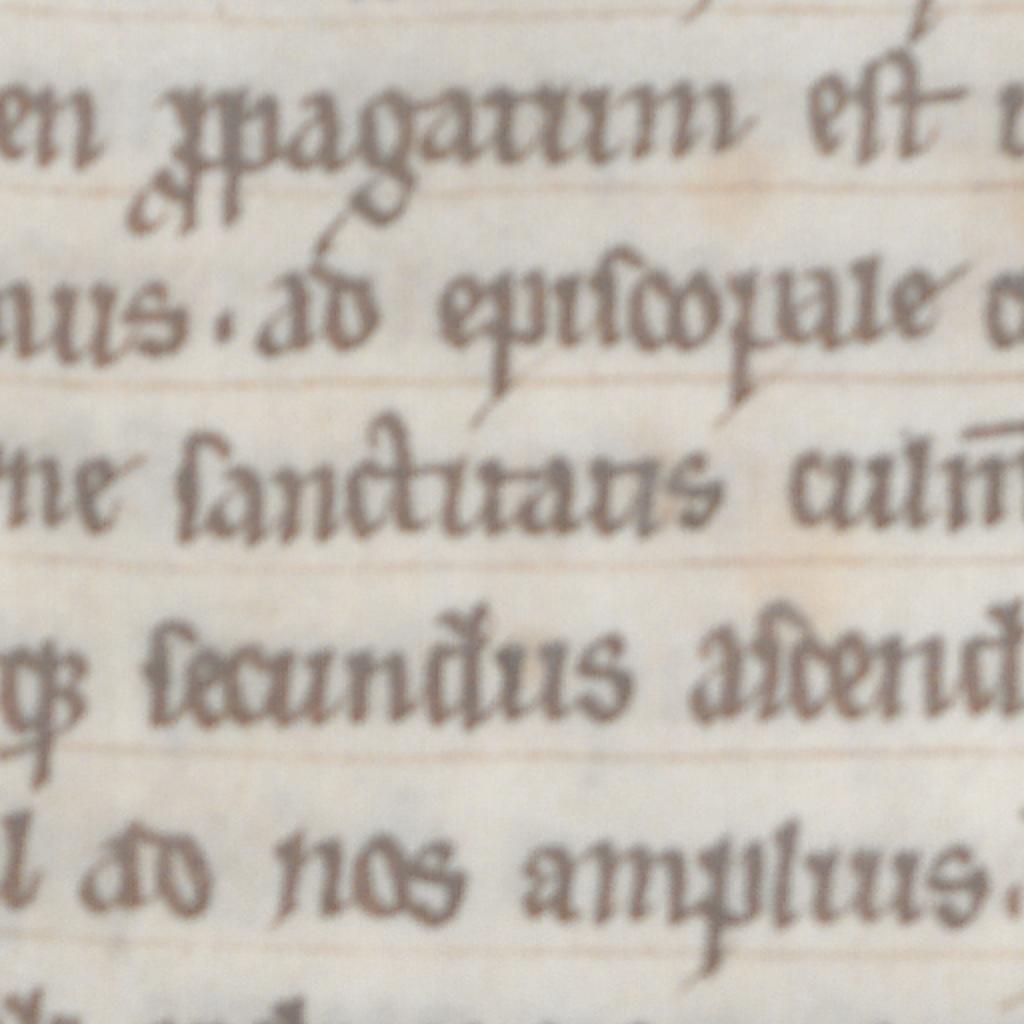 en ꝓpagatum est
nus. ad episcopale
ne sanctitatis culm̅
qꝫ secundus ascend
l ad nos amplius.